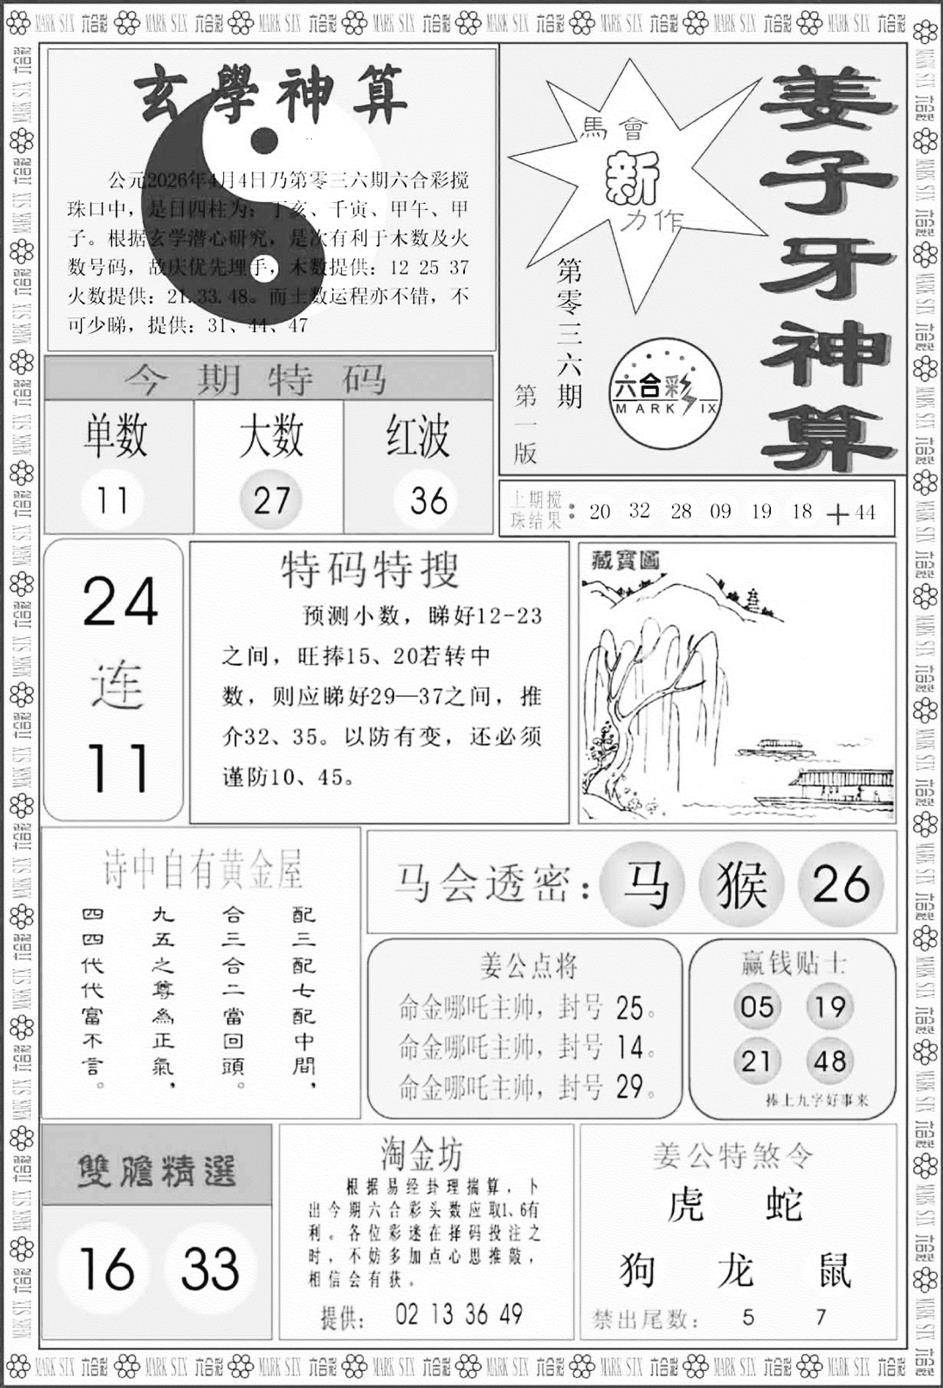 玄學神算
公元2026年4月4日乃第零三六期六合彩搅
珠口中，是日四柱为：丁亥、千寅、甲午、甲
子。根据玄学潜心研究，是次有利于木数及火
数号码，故庆优先埋手，木数提供：12 25 37
火数提供：21.33.48。而土数运程亦不错，不
可少睇，提供：31、44、47
馬會
新
力作
第零三六期
第一版
六合彩
MARK SIX
姜子牙神算
今期特码
单数 大数 红波
11 27 36
上期搅
珠结果：20 32 28 09 19 18 + 44
24
连
11
特码特搜
预测小数，睇好12-23
之间，旺捧15、20若转中
数，则应睇好29—37之间，推
介32、35。以防有变，还必须
谨防10、45。
藏寶圖
诗中自有黄金屋
配三配七配中間，
合三合二當回頭。
九五之尊為正氣，
四四代代富不言。
马会透密：马 猴 26
姜公点将
命金哪吒主帅，封号 25。
命金哪吒主帅，封号 14。
命金哪吒主帅，封号 29。
赢钱贴士
05 19
21 48
捧上九字好事来
雙膽精選
16 33
淘金坊
根据易经卦理揣算，卜
出今期六合彩头数应取1、6有
利。各位彩迷在择码投注之
时，不妨多加点心思推敲，
相信会有获。
提供： 02 13 36 49
姜公特煞令
虎 蛇
狗 龙 鼠
禁出尾数： 5 7